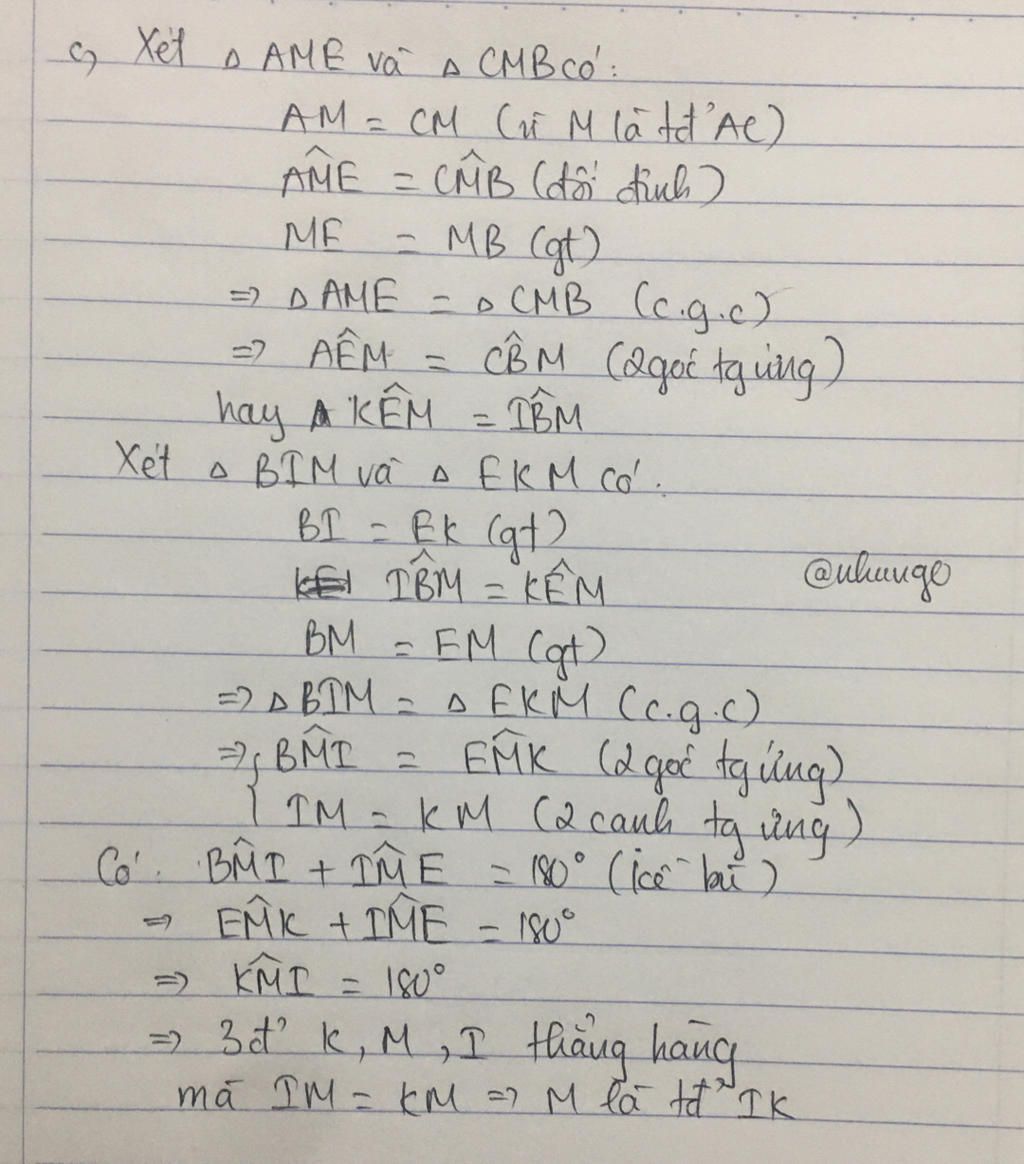 c, Xét △ AME và △ CMB có:
AM = CM (vì M là tđ' AC)
AM̂E = CM̂B (đối đỉnh)
ME = MB (gt)
=> △ AME = △ CMB (c.g.c)
=> AÊM = CB̂M (2 góc tg ứng)
hay KÊM = IB̂M
Xét △ BIM và △ EKM có:
BI = EK (gt)
IB̂M = KÊM
@nhunge
BM = EM (gt)
=> △ BIM = △ EKM (c.g.c)
=> { BM̂I = EM̂K (2 góc tg ứng)
IM = KM (2 cạnh tg ứng)
Có: BM̂I + IM̂E = 180° (kề bù)
=> EM̂K + IM̂E = 180°
=> KM̂I = 180°
=> 3 đ' K, M, I thẳng hàng
mà IM = KM => M là tđ' IK